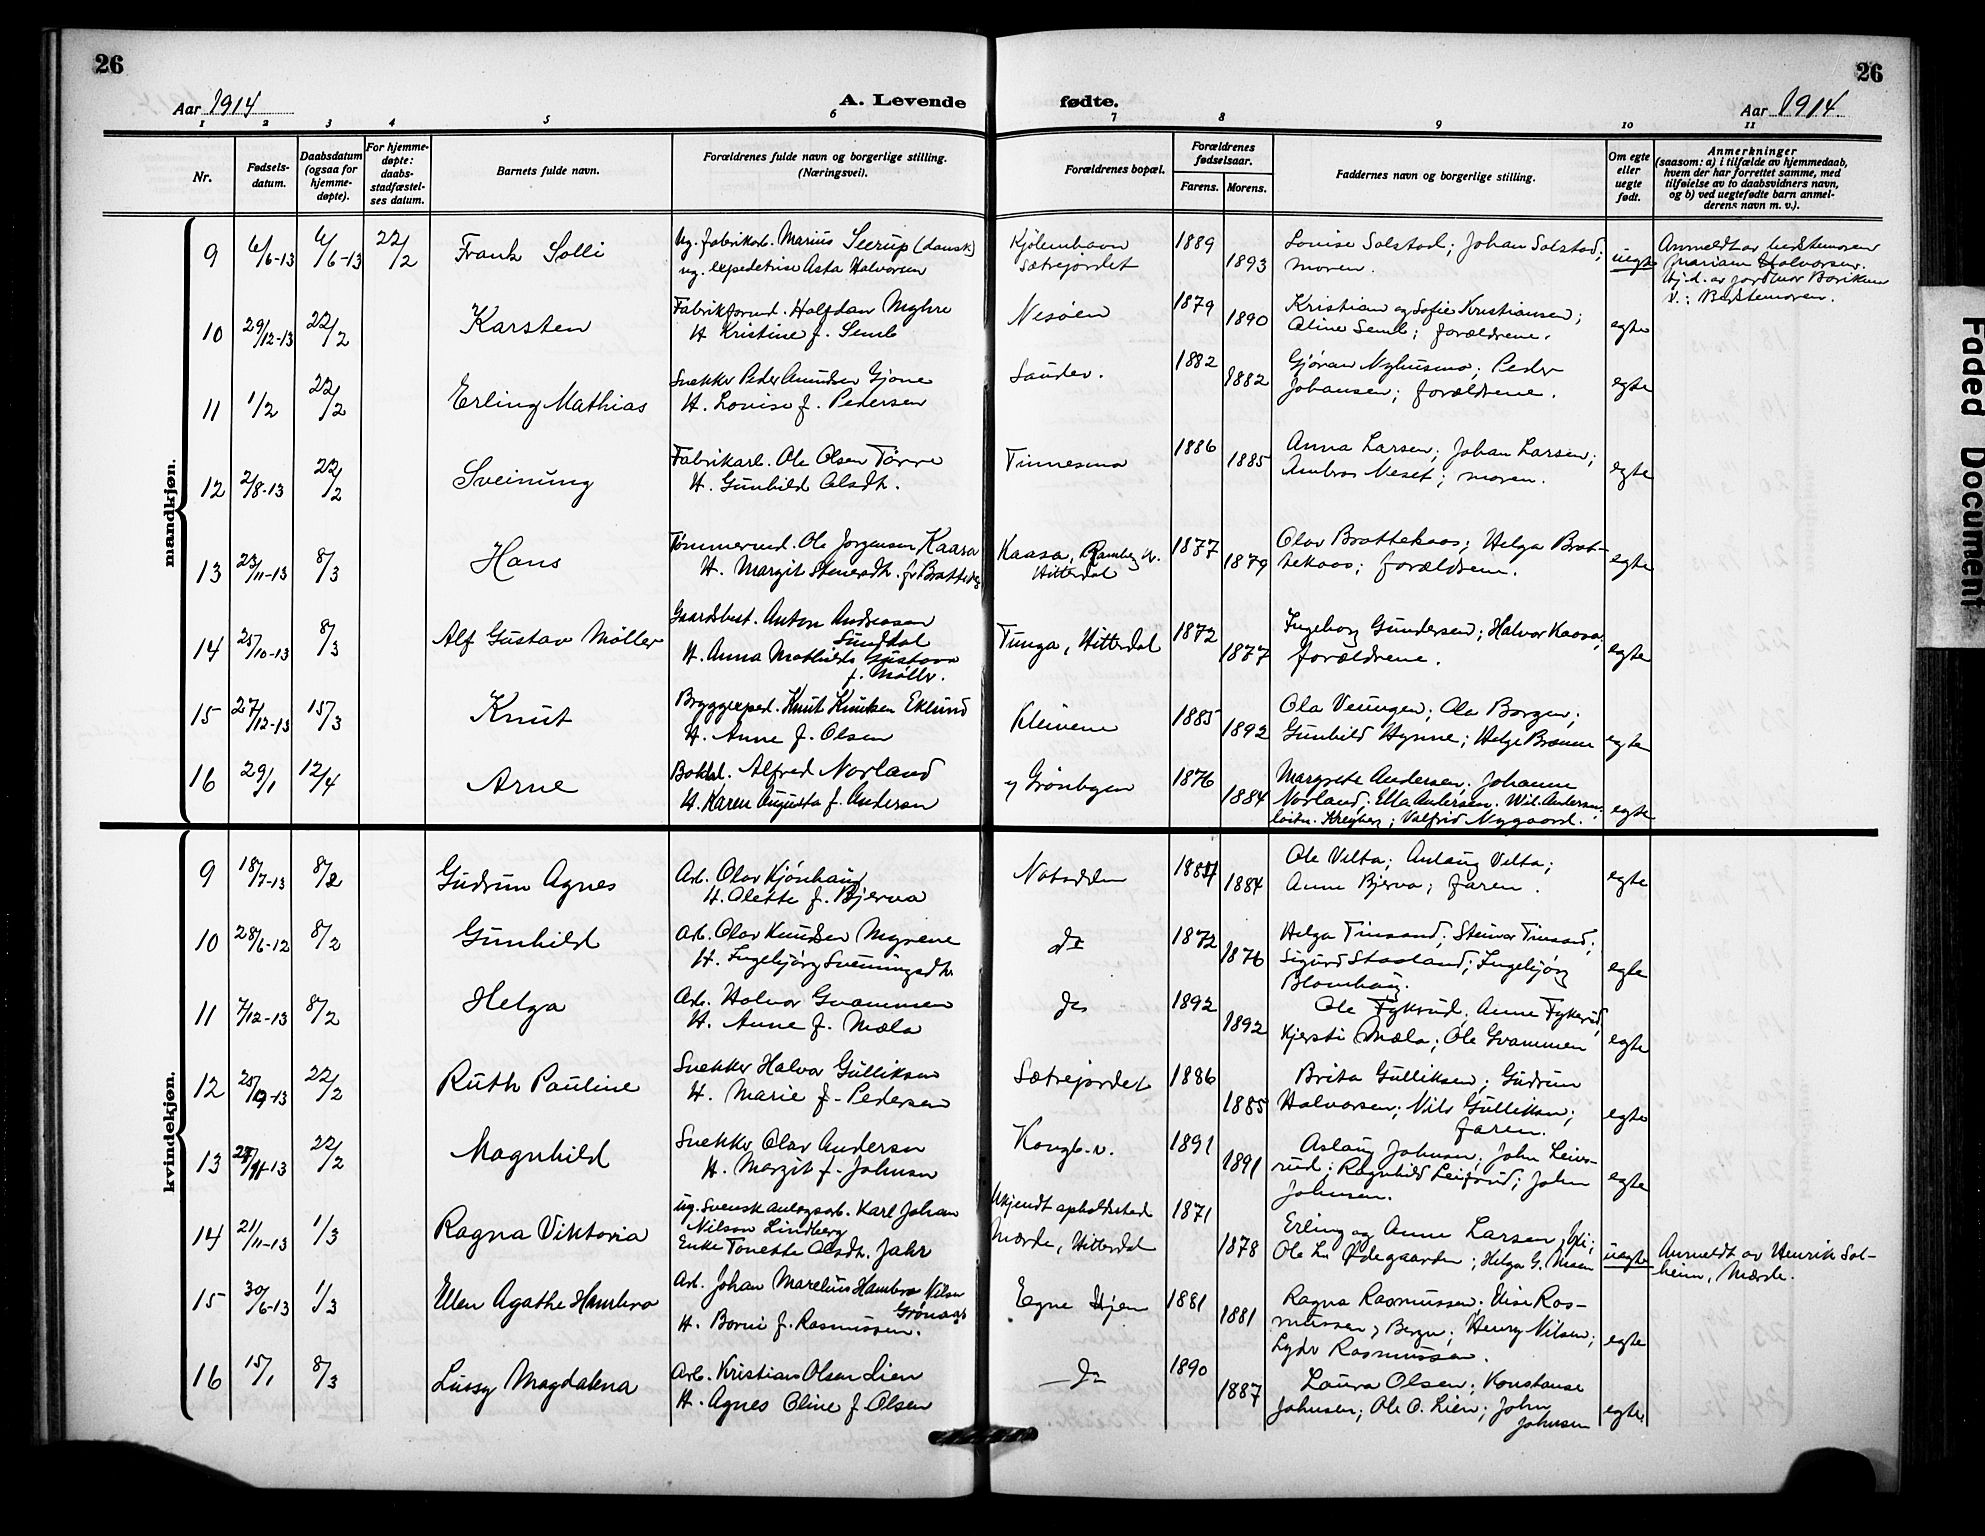 26
26
Aar 1914
A. Levende
fødte.
Aar 1914.
1 2 3 4 5 6 7 8 9 10 11
Nr.
Fødsels-
datum.
Daabsdatum
(ogsaa for
hjemme-
døpte).
For hjemme-
døpte:
daabs-
stadfæstel-
ses datum.
Barnets fulde navn.
Forældrenes fulde navn og borgerlige stilling.
(Næringsvei).
Forældrenes bopæl.
Forældrenes
fødselsaar.
Farens. Morens.
Faddernes navn og borgerlige stilling.
Om egte
eller
uegte
født.
Anmerkninger
(saasom: a) i tilfælde av hjemmedaab,
hvem der har forrettet samme, med
tilføielse av to daabsvidners navn,
og b) ved uegtefødte barn anmel-
derens navn m. v.).
mandkjøn.
9 6/6-13 6/6-13 22/2 Frank Solli
Ug. fabrikarb. Marius Seerup (dansk)
ug. expeditrise Asta Halvorsen
Kjøbenhavn
Sætrejordet
1889
1893
Louise Solstad; Johan Solstad;
moren.
uegte
Anmeldt av bedstemoren
Mariane Halvorsen.
Hj.d. av jordmor
V.: Bedstemoren.
10 29/12-13 22/2 Karsten
Fabrikform. Halfdan Myhre
H. Kristine f. Semb
Nesøen
1879
1890
Kristian og Sofie Kristiansen;
Aline Semb; forældrene.
egte
11 1/2 22/2 Erling Mathias
Snekker Peder Amundsen Gjone
H. Louise f. Pedersen
Sauder.
1882
1882
Gjøran Nyhusmo; Peder
Johansen; forældrene.
egte
12 2/8-13 22/2 Sveinung
Fabrikarb. Ole Olsen
H. Gunhild Olsdt.
Tinnesmo
1886
1885
Anna Larsen; Johan Larsen;
Ambros Neset; moren.
egte
13 23/11-13 8/3 Hans
Tømmermd. Ole Jørgensen Kaasa
H. Margit
Kaasa,
Hitterdal
1877
1879
Olav Brattekaas; Helga Brat-
tekaas; forældrene.
egte
14 25/10-13 8/3 Alf Gustav Møller
Gaardbest. Anton Andreasen
Sundtal
H. Anna Mathilde Gustava
f. Møller.
Tunga, Hitterdal
1872
1877
Ingeborg Gundersen; Halvor Kaasa;
forældrene.
egte
15 27/12-13 15/3 Knut
Bryggerped. Knut Knutsen Eklund
H. Anne f. Olsen
Kleivene
1885
1892
Ola Veungen; Ole Borgen;
Gunhild Hynne; Helge
egte
16 29/1 12/4 Arne
Bokh. Alfred Norland
H. Karen Augusta f. Andersen
Grønbyen
1876
1884
Margrete Andersen; Johanne
Norland; Ella Andersen. Wil. Andersen;
Valfrid Nygaard.
egte
kvindekjøn.
9 18/7-13 8/2 Gudrun Agnes
Arb. Olav Kjønhaug
H. Olette f. Bjerva
Notodden
1884
1884
Ole Velta; Aslaug Velta;
Anne Bjerva; faren.
egte
10 28/6-12 8/2 Gunhild
Arb. Olav Knudsen Myrene
H. Ingebjørg Sveinungsdt.
do
1872
1876
Helga Tinsand; Steinar Tinsand;
Sigurd Staaland; Ingebjørg
Blomhaug.
egte
11 7/12-13 8/2 Helga
Arb. Halvor Gvammen
H. Anne f. Mæla
do
1892
1892
Ole Fykerud, Anne Fykerud,
Kjersti Mæla; Ole Gvammen
egte
12 25/10-13 22/2 Ruth Pauline
Snekker Halvor Gulliksen
H. Marie f. Pedersen
Sætrejordet
1886
1885
Brita Gulliksen; Gudrun
Halvorsen; Nils Gulliksen;
faren.
egte
13 22/2 Magnhild
Snekker Olav Andersen
H. Margit f. Johnsen
Kongb.v.
1891
1891
Aslaug Johnsen; John Leifs-
rud; Ragnhild Leifsrud; John
Johnsen.
egte
14 21/11-13 1/3 Ragna Viktoria
ug. svensk anlægsarb. Karl Johan
Nilson Lindberg
Enke Tonette Olsdt. Jahr
Ukjendt opholdssted
Mærde, Hitterdal
1871
1878
Erling og Anne Larsen,
Ole Ln Ødegaarden; Helga G. Nisen
uegte
Anmeldt av Henrik Sol-
heim, Mærde.
15 30/6-13 1/3 Ellen Agathe Hambro
Arb. Johan Marelius Hambro Nilsen
Grønaas
H. Borni f. Rasmussen.
Egne Hjem
1881
1881
Ragna Rasmussen; Elise Ras-
mussen, Bergen; Henry Nilsen;
Lyder Rasmussen.
egte
16 15/1 8/3 Lussy Magdalena
Arb. Kristian Olsen Lien
H. Agnes Oline f. Olsen
do
1890
1887
Laura Olsen; Konstanse
Johnsen; Ole O. Lien; John
Johnsen
egte
Faded Document